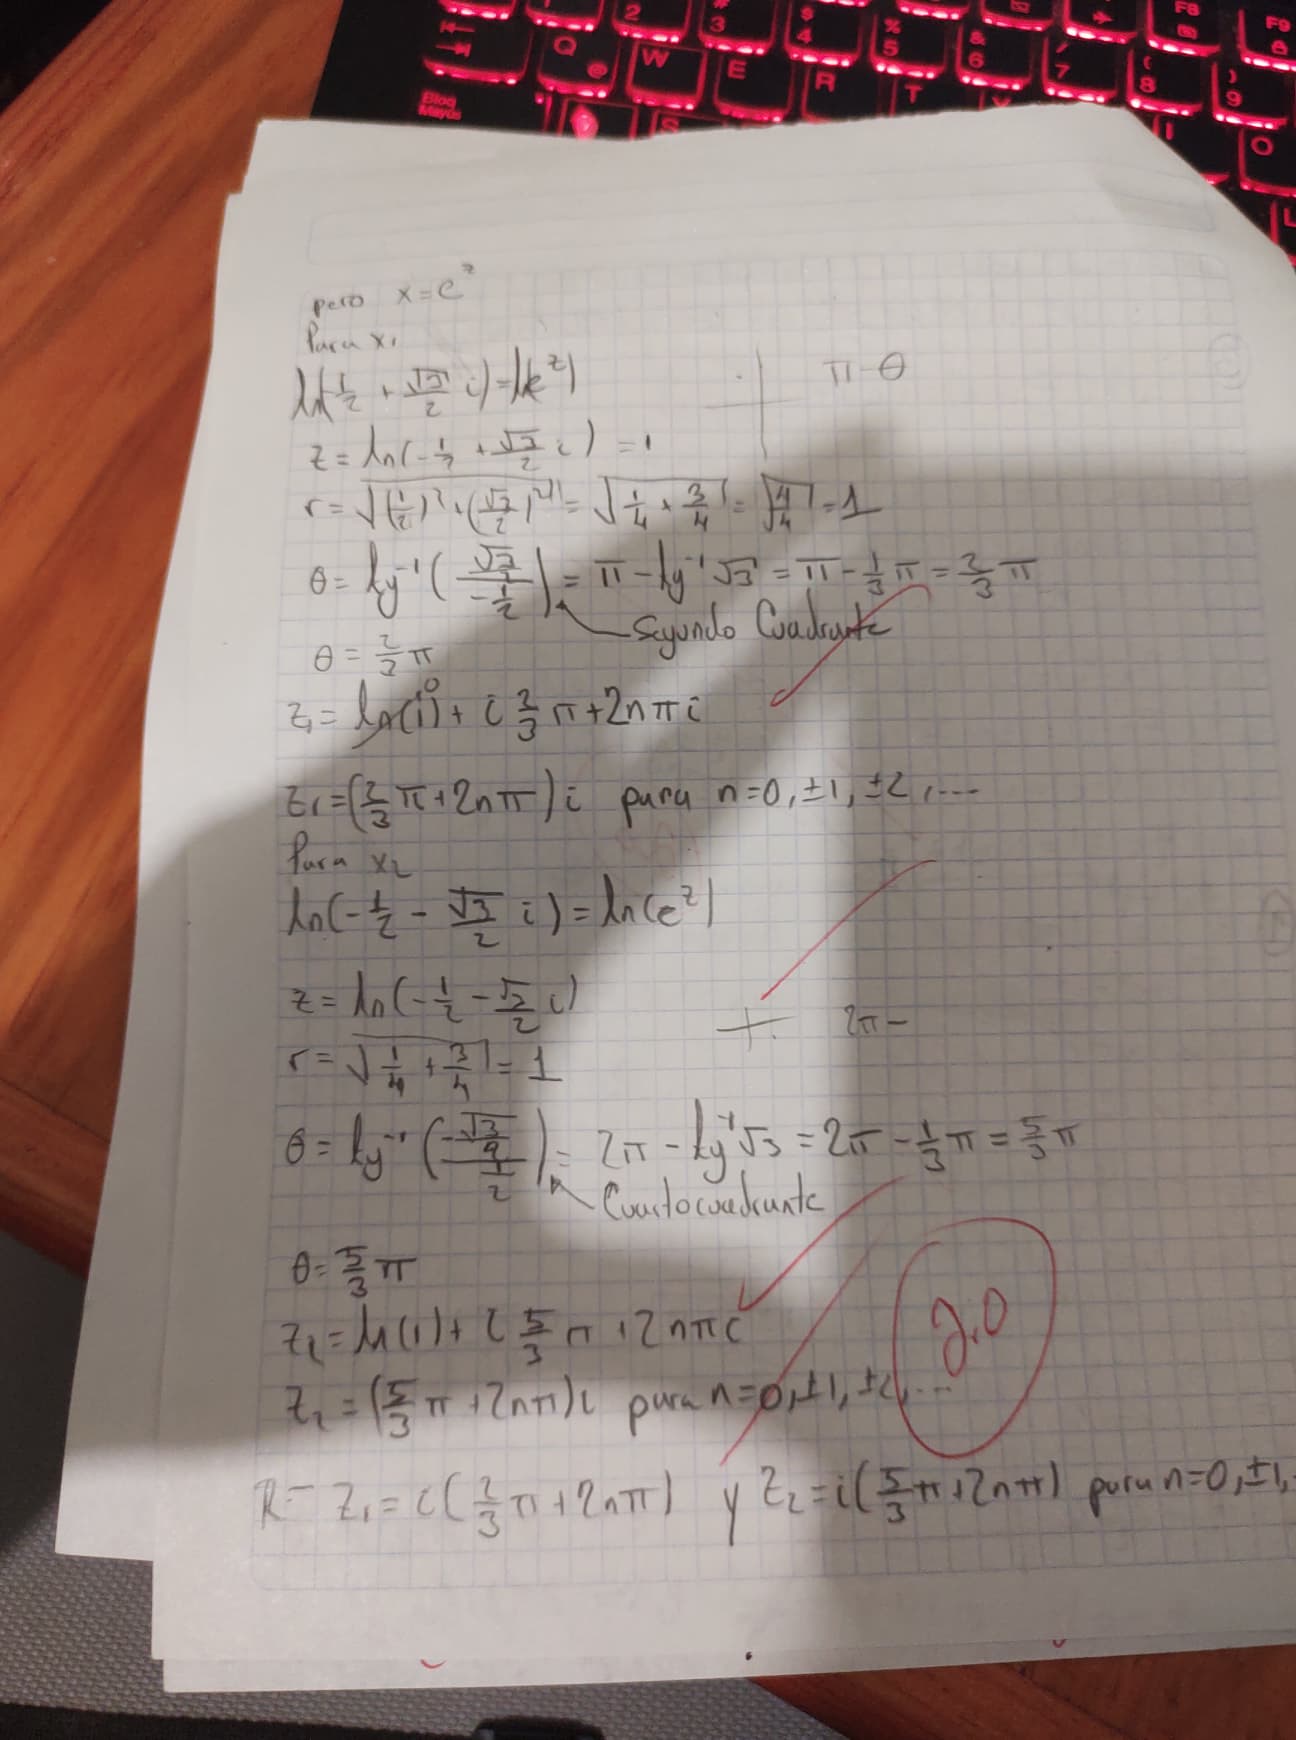 2 # 3 $ 4 % 5 & 6 / 7 ( 8 ) 9 F8 F9
Q @ W E R T Y I O
Bloq Mayús S L
pero x = e^z
Para x₁
ln(½ + √3/2 i) = ln(e^z)
π - θ
z = ln(-1/2 + √3/2 i) = 1
r = √((1/2)² + (√3/2)²) = √(1/4 + 3/4) = √(4/4) = 1
θ = tg⁻¹((√3/2)/(-1/2)) = π - tg⁻¹√3 = π - 1/3 π = 2/3 π
Segundo Cuadrante
θ = 2/3 π
z₁ = ln(1)⁰ + i 2/3 π + 2nπi
z₁ = (2/3 π + 2nπ)i para n=0, ±1, ±2, ...
Para x₂
ln(-1/2 - √3/2 i) = ln(e^z)
z = ln(-1/2 - √3/2 i)
2π -
r = √(1/4 + 3/4) = 1
θ = tg⁻¹((-√3/2)/(1/2)) = 2π - tg⁻¹√3 = 2π - 1/3 π = 5/3 π
Cuarto cuadrante
θ = 5/3 π
z₂ = ln(1) + i 5/3 π + 2nπi
2.0
z₂ = (5/3 π + 2nπ)i para n=0, ±1, ±2, ...
R= z₁ = i(2/3 π + 2nπ) y z₂ = i(5/3 π + 2nπ) para n=0, ±1,